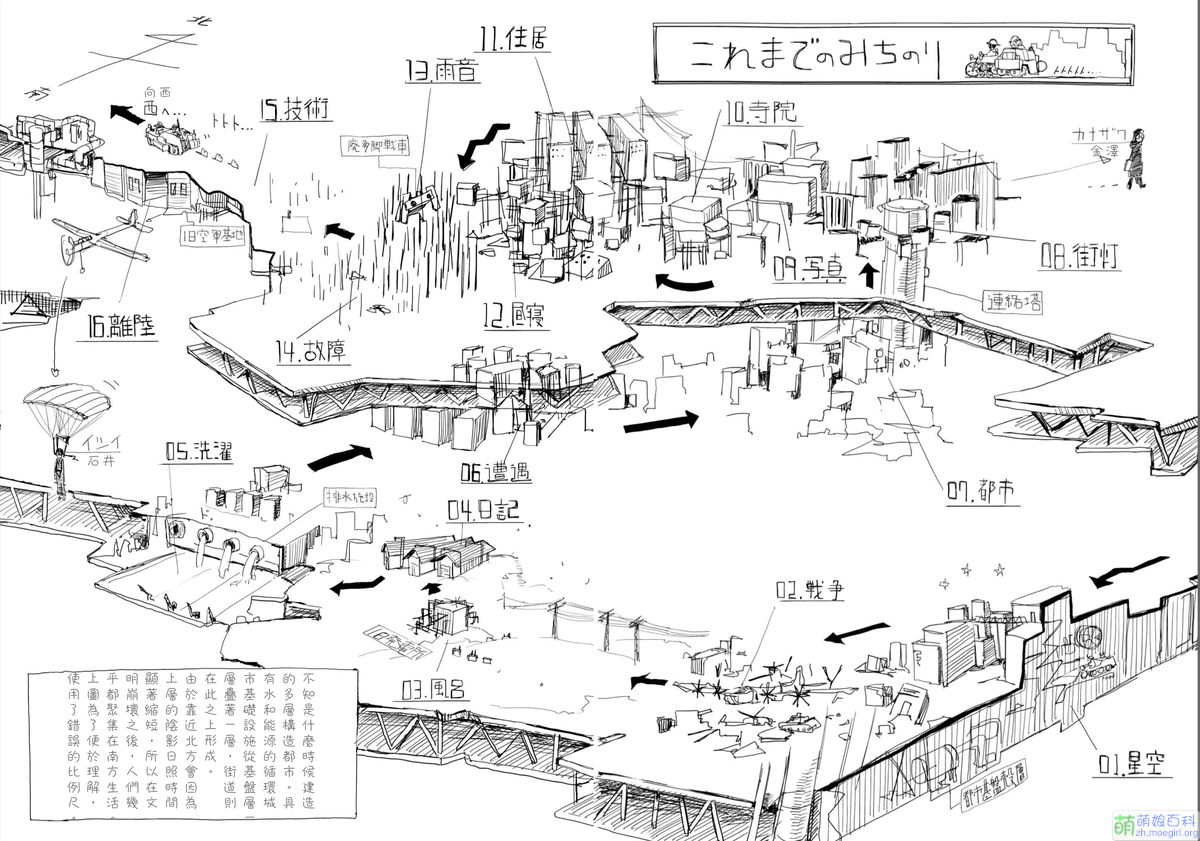 これまでのみちのり
北
南
向西
西へ…
トトト…
11.住居
13.雨音
15.技術
10.寺院
廃多脚戦車
カナザワ
金澤
旧空軍基地
08.街灯
09.写真
連結塔
16.離陸
12.昼寝
14.故障
イシイ
石井
05.洗濯
06.遭遇
07.都市
排水施設
04.日記
02.戦争
03.風呂
01.星空
都市基盤殻層
不知是什麼時候建造
的多層構造都市。具
有水和能源的循環城
市基礎設施從基盤層一
層疊著一層,街道則
在此之上形成。
由於靠近北方會因為
上層的陰影日照時間
顯著縮短,所以在文
明崩壞之後,人們幾
乎都聚集在南方生活。
上圖為了便於理解,
使用了錯誤的比例尺。
萌娘百科
zh.moegirl.org